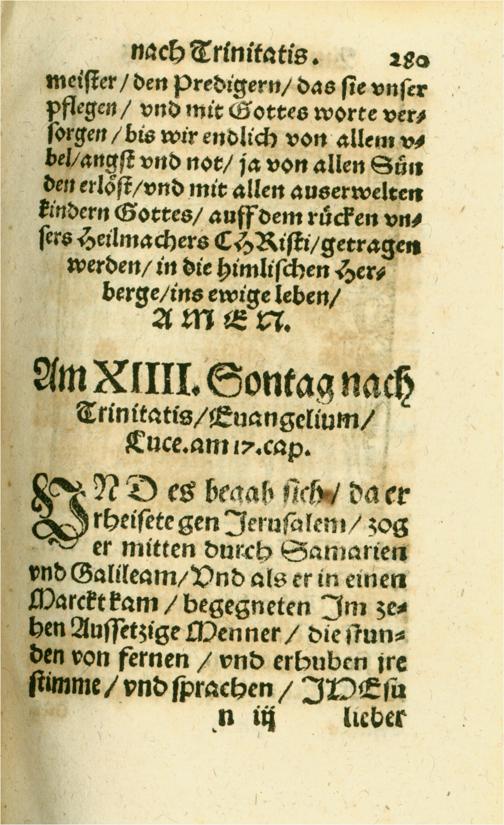 nach Trinitatis. 280
meister/ den Predigern/ das sie vnser
pflegen/ vnd mit Gottes worte ver⸗
sorgen/ bis wir endlich von allem v⸗
bel/ angst vnd not/ ja von allen Sün
den erlöst/ vnd mit allen auserwelten
kindern Gottes/ auff dem rücken vn⸗
sers Heilmachers CHRisti/ getragen
werden/ in die himlischen Her⸗
berge/ ins ewige leben/
A M E N.
Am XIIII. Sontag nach
Trinitatis/ Euangelium/
Luce. am 17. cap.
VND es begab sich/ da er
rheisete gen Jerusalem/ zog
er mitten durch Samarien
vnd Galileam/ Vnd als er in einen
Marckt kam/ begegneten Jm ze⸗
hen Aussetzige Menner/ die stun⸗
den von fernen/ vnd erhuben jre
stimme/ vnd sprachen/ JHEsu
n iij lieber